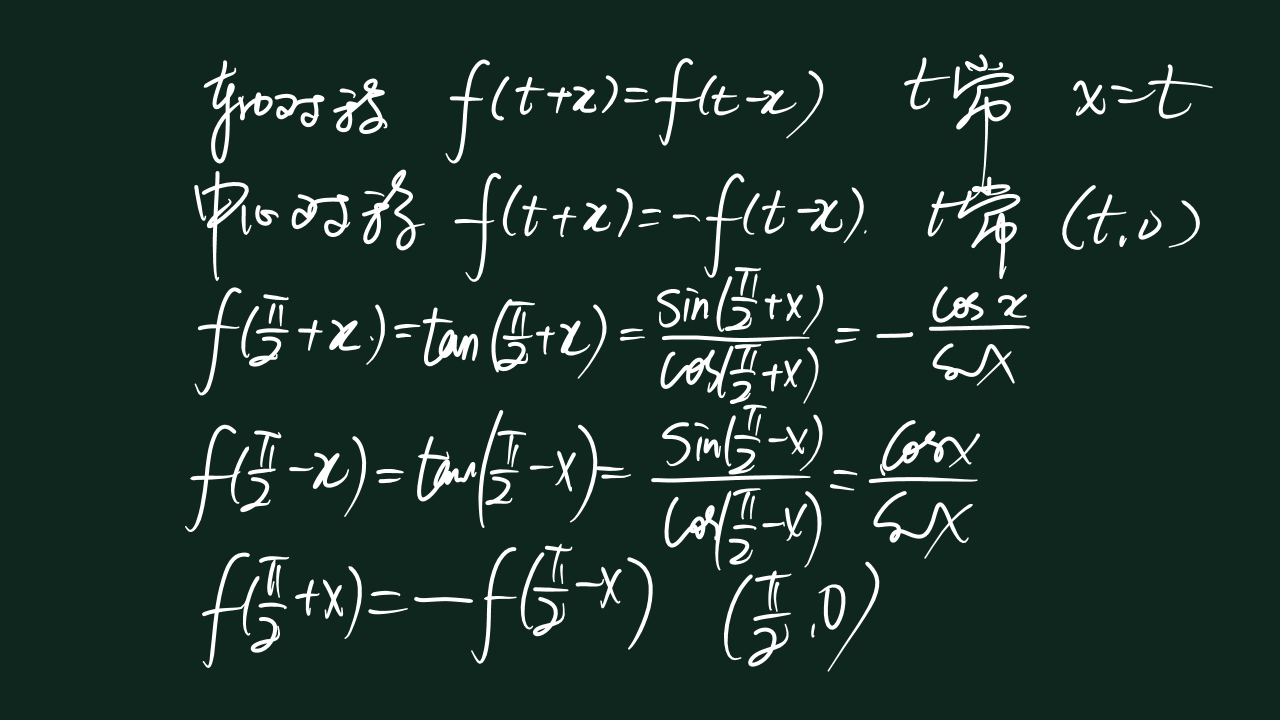 轴对称 f(t+x)=f(t-x) t常 x=t
中心对称 f(t+x)=-f(t-x). t常 (t,0)
f(π/2+x)=tan(π/2+x)=sin(π/2+x)/cos(π/2+x)=-cosx/sinx
f(π/2-x)=tan(π/2-x)=sin(π/2-x)/cos(π/2-x)=cosx/sinx
f(π/2+x)=-f(π/2-x) (π/2,0)